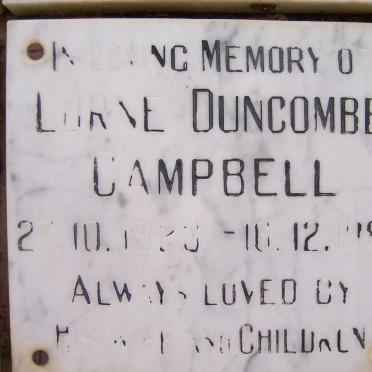 IN LOVING MEMORY O
LORNE DUNCOMBE
CAMPBELL
10.1923 - 16.12.19
ALWAYS LOVED BY
HIS WIFE AND CHILDREN